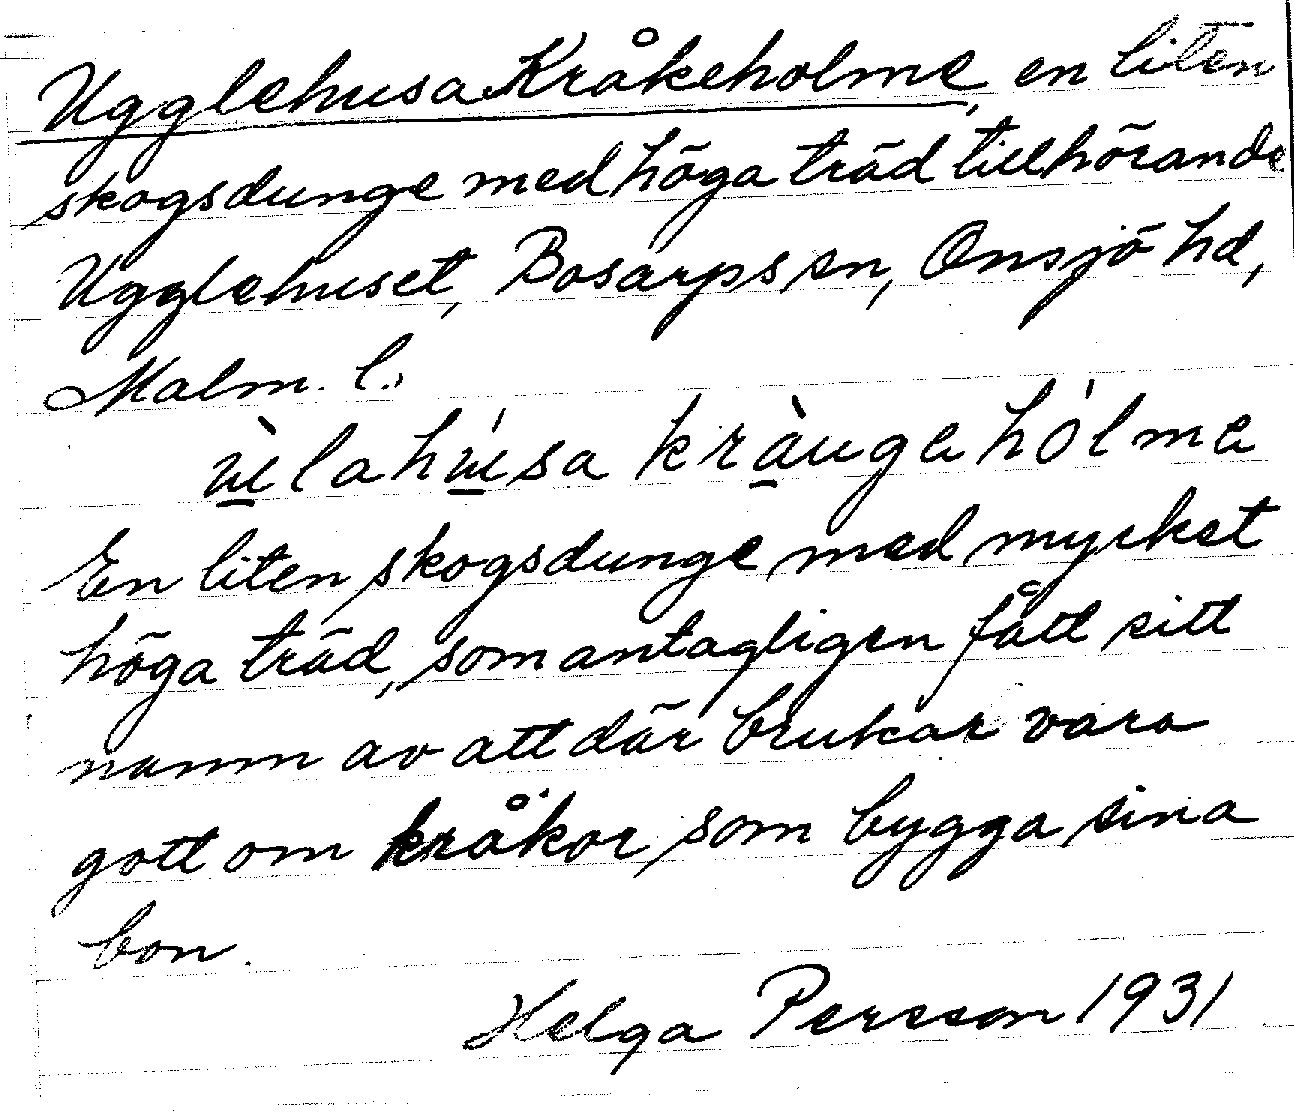 Ugglehusa Kråkeholme, en liten
skogsdunge med höga träd tillhörande
Ugglehuset, Bosarps sn, Onsjö hd,
Malm. l.,
ùlahúsa kràugahólma
En liten skogsdunge med mycket
höga träd, som antagligen fått sitt
namn av att där brukar vara
gott om kråkor som bygga sina
bon.
Helga Persson 1931